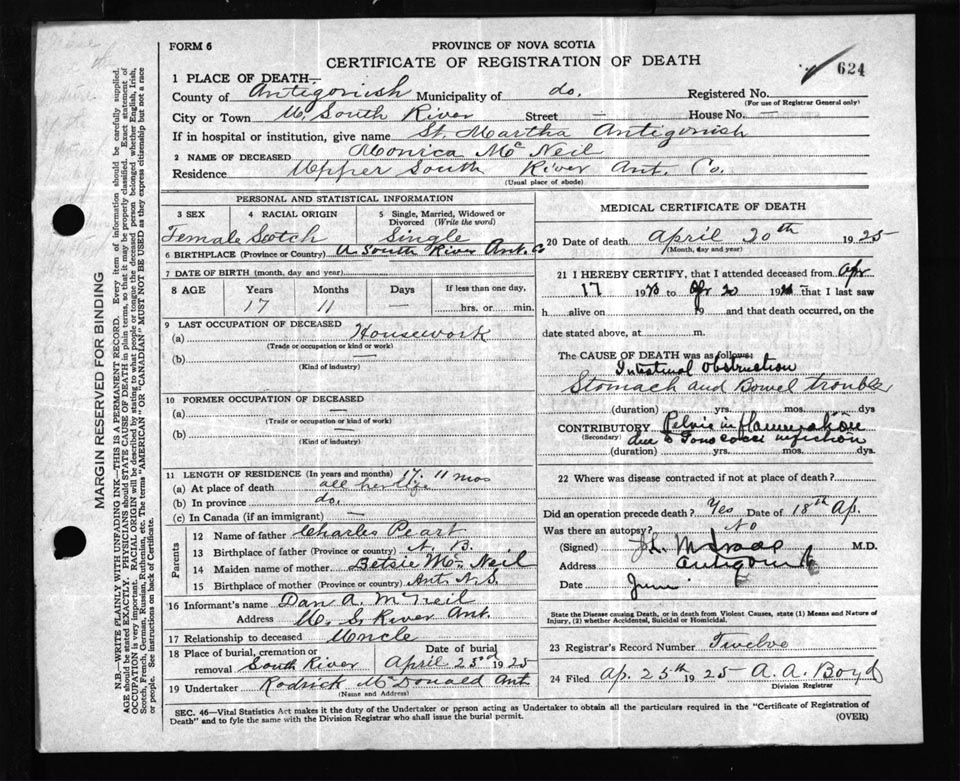 FORM 6
PROVINCE OF NOVA SCOTIA
CERTIFICATE OF REGISTRATION OF DEATH
624
1 PLACE OF DEATH—
County of Antigonish Municipality of do. Registered No.
(For use of Registrar General only)
City or Town U. South River Street — House No. —
If in hospital or institution, give name St. Martha Antigonish
2 NAME OF DECEASED Monica McNeil
Residence Upper South River Ant. Co.
(Usual place of abode)
PERSONAL AND STATISTICAL INFORMATION
3 SEX
4 RACIAL ORIGIN
5 Single, Married, Widowed or Divorced (Write the word)
Female Scotch Single
6 BIRTHPLACE (Province or Country) U. South River Ant. Co
7 DATE OF BIRTH (month, day and year)
8 AGE Years Months Days If less than one day,
17 11 — hrs. or min.
9 LAST OCCUPATION OF DECEASED
(a) Housework
(Trade or occupation or kind of work)
(b) —
(Kind of industry)
10 FORMER OCCUPATION OF DECEASED
(a) —
(Trade or occupation or kind of work)
(b) —
(Kind of industry)
11 LENGTH OF RESIDENCE (In years and months) 17. 11 mos
(a) At place of death all her life
(b) In province do.
(c) In Canada (if an immigrant) —
Parents
12 Name of father Charles Peart
13 Birthplace of father (Province or country) N. B.
14 Maiden name of mother Betsie McNeil
15 Birthplace of mother (Province or country) Ant. N.S.
16 Informant's name Dan A. McNeil
Address U. S. River Ant.
17 Relationship to deceased Uncle
18 Place of burial, cremation or removal South River
Date of burial April 23rd 1925
19 Undertaker Rodrick McDonald Ant.
(Name and Address)
MEDICAL CERTIFICATE OF DEATH
20 Date of death April 20th 1925
(Month, day and year)
21 I HEREBY CERTIFY, that I attended deceased from Apr
17 19 to Apr 20 19 that I last saw
h alive on 19 and that death occurred, on the
date stated above, at m.
The CAUSE OF DEATH was as follows:
Intestinal Obstruction
Stomach and Bowel trouble
(duration) yrs. mos. dys
CONTRIBUTORY Pelvic inflammation
(Secondary) due to Gonococci infection
(duration) yrs. mos. dys.
22 Where was disease contracted if not at place of death?
Did an operation precede death? Yes Date of 18th Ap.
Was there an autopsy? No
(Signed) M.D.
Address Antigonish
Date June
State the Disease causing Death, or in death from Violent Causes, state (1) Means and Nature of
Injury, (2) whether Accidental, Suicidal or Homicidal.
23 Registrar's Record Number Twelve
24 Filed Ap. 25th 1925 A. A. Boyd
Division Registrar
SEC. 46—Vital Statistics Act makes it the duty of the Undertaker or person acting as Undertaker to obtain all the particulars required in the "Certificate of Registration of
Death" and to fyle the same with the Division Registrar who shall issue the burial permit.
(OVER)
MARGIN RESERVED FOR BINDING
N.B.—WRITE PLAINLY WITH UNFADING INK—THIS IS A PERMANENT RECORD. Every item of information should be carefully supplied.
AGE should be stated EXACTLY. PHYSICIANS should STATE CAUSE OF DEATH in plain terms, so that it may be properly classified. Exact statement of
OCCUPATION is very important. RACIAL ORIGIN will be described by stating to what people or tongue the deceased person belonged whether English, Irish,
Scotch, French, German, Russian, Ruthenian, etc. The terms "AMERICAN" OR "CANADIAN" MUST NOT BE USED as they express citizenship but not a race
or people. See instructions on back of Certificate.